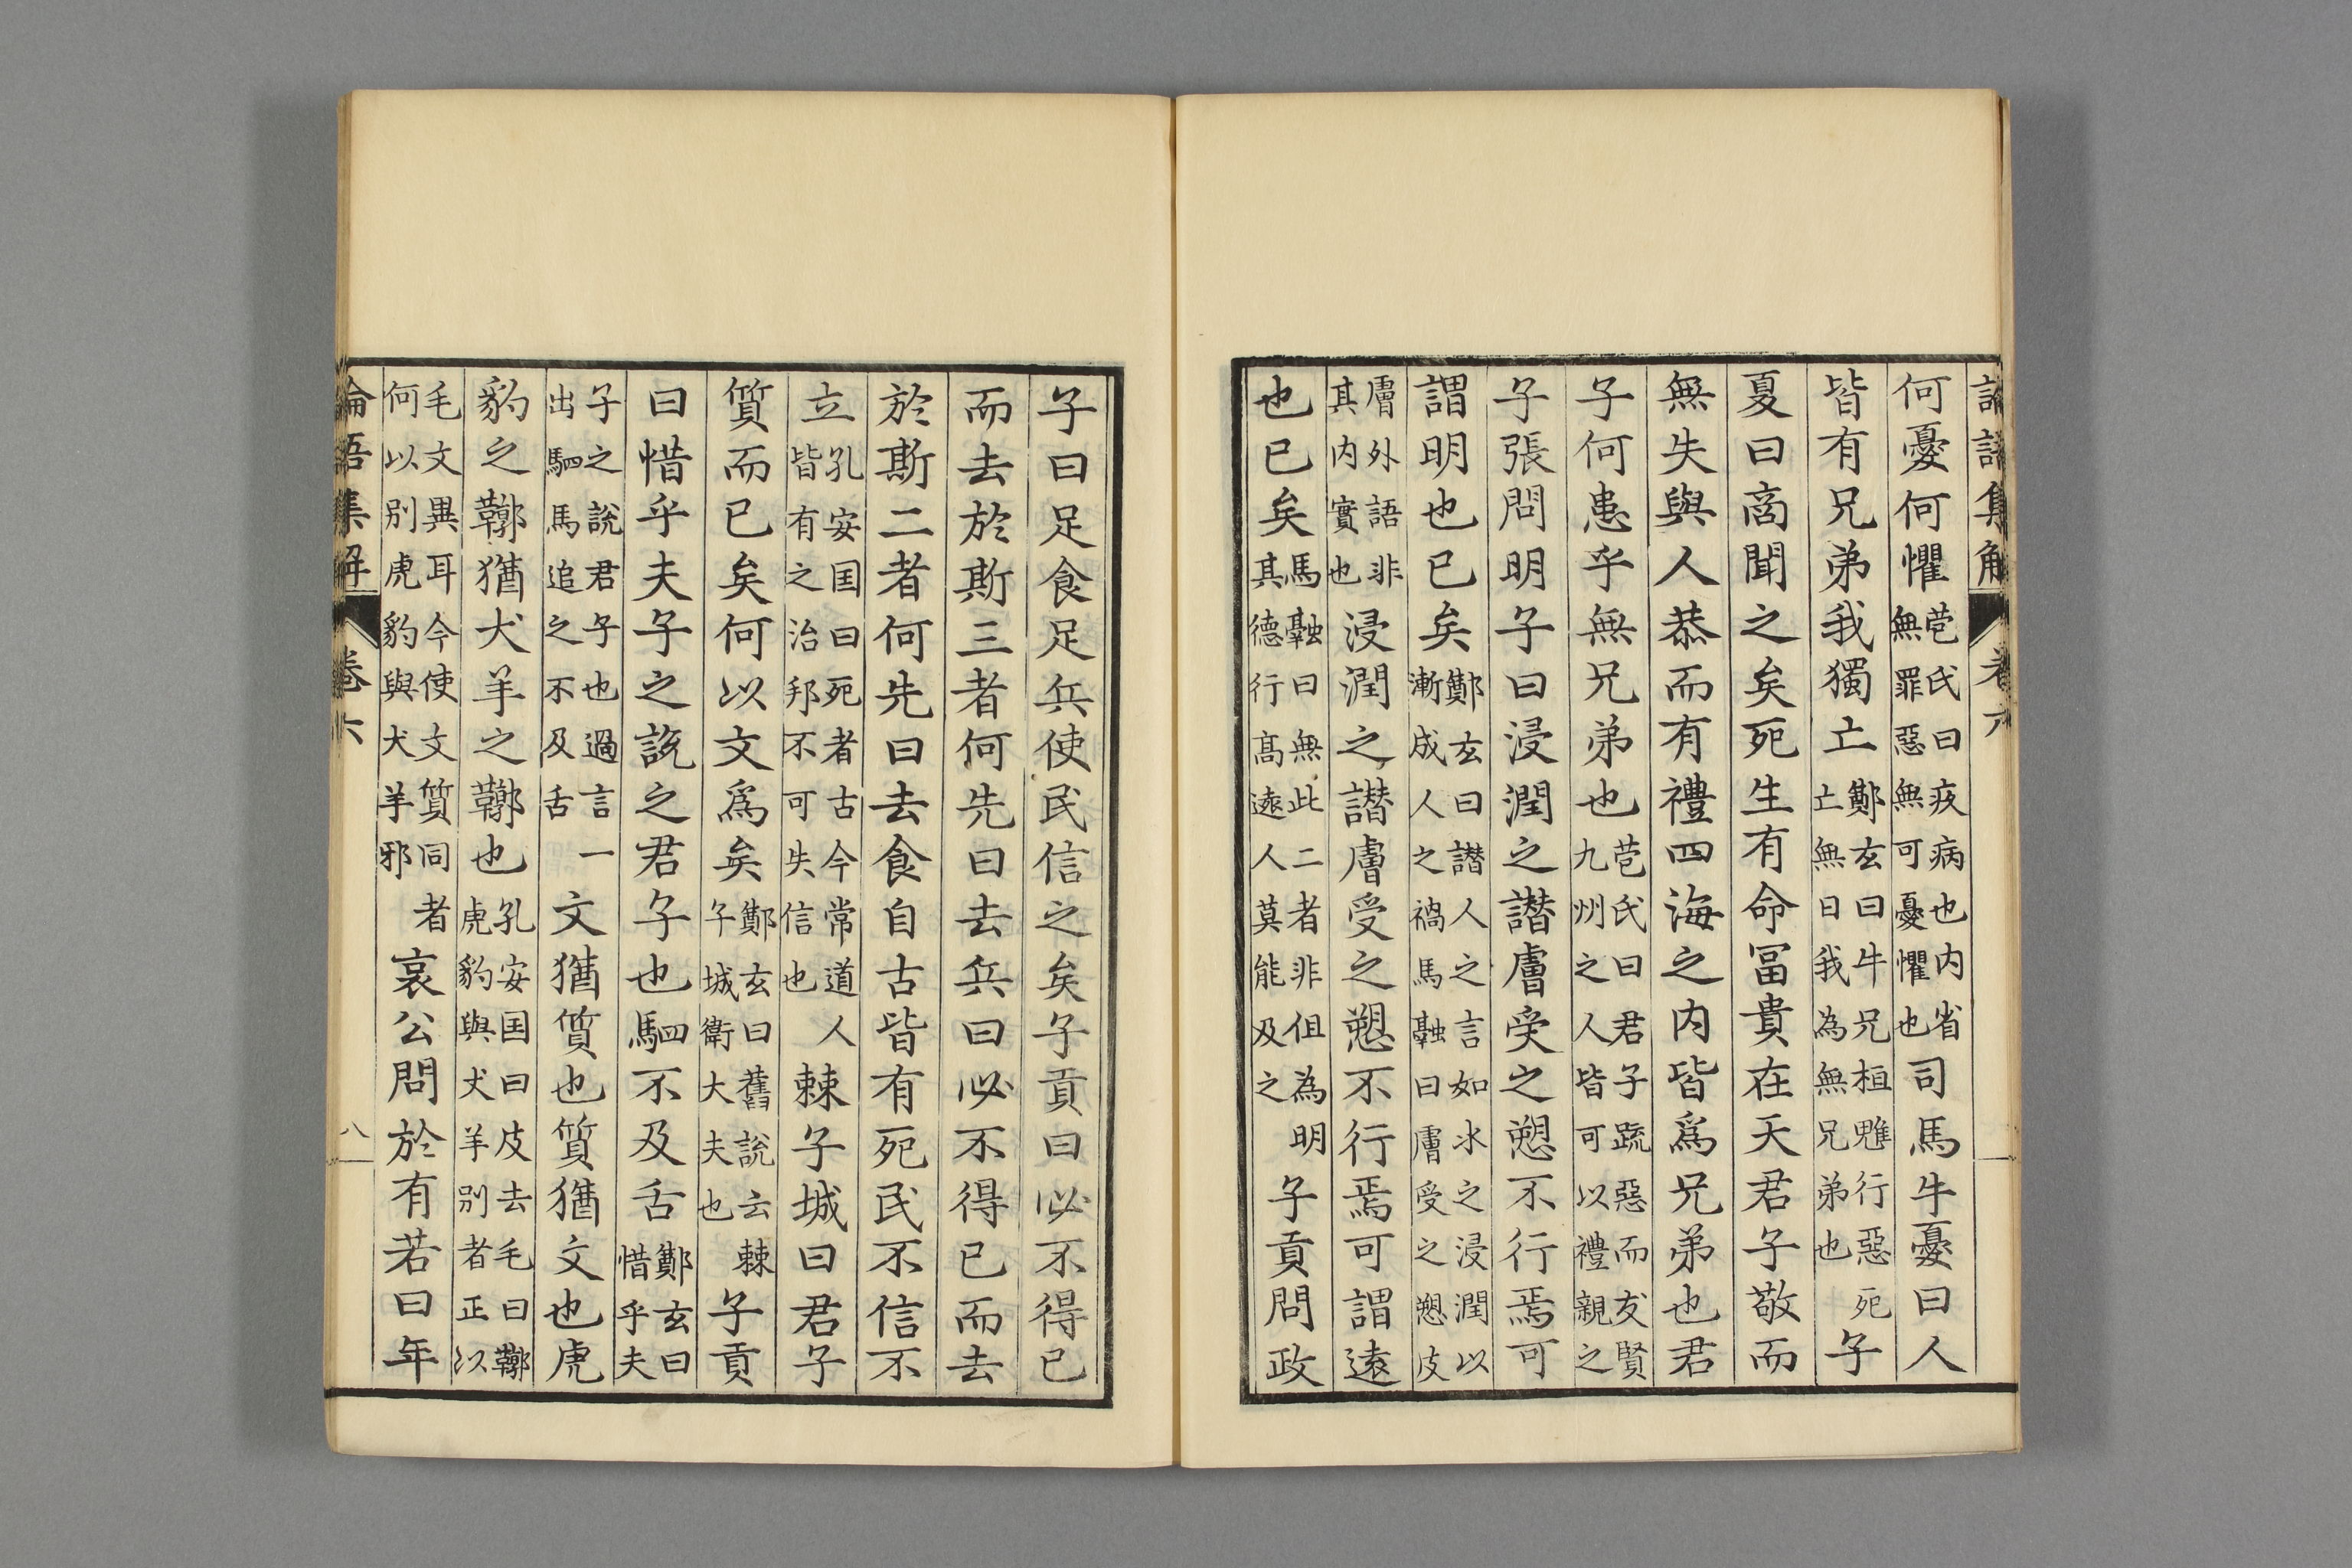 論語集解 卷六
何憂何懼苞氏曰疚病也内省無罪惡無可憂懼也司馬牛憂曰人
皆有兄弟我獨亡鄭玄曰牛兄桓魋行惡死亡無日我為無兄弟也子
夏曰商聞之矣死生有命冨貴在天君子敬而
無失與人恭而有禮四海之内皆爲兄弟也君
子何患乎無兄弟也苞氏曰君子疏惡而友賢九州之人皆可以禮親之
子張問明子曰浸潤之譖膚受之愬不行焉可
謂明也已矣鄭玄曰譖人之言如水之浸潤以漸成人之禍馬融曰膚受之愬皮
膚外語非其内實也浸潤之譖膚受之愬不行焉可謂遠
也已矣馬融曰無此二者非伹為明其德行髙遠人莫能及之子貢問政
子曰足食足兵使民信之矣子貢曰必不得已
而去於斯三者何先曰去兵曰必不得已而去
於斯二者何先曰去食自古皆有死民不信不
立孔安国曰死者古今常道人皆有之治邦不可失信也棘子城曰君子
質而已矣何以文爲矣鄭玄曰舊說云棘子城衛大夫也子貢
曰惜乎夫子之說之君子也駟不及舌鄭玄曰惜乎夫
子之說君子也過言一出駟馬追之不及舌文猶質也質猶文也虎
豹之鞹猶犬羊之鞹也孔安国曰皮去毛曰鞹虎豹與犬羊別者正以
毛文異耳今使文質同者何以別虎豹與犬羊邪哀公問於有若曰年
論語集解 卷六 八